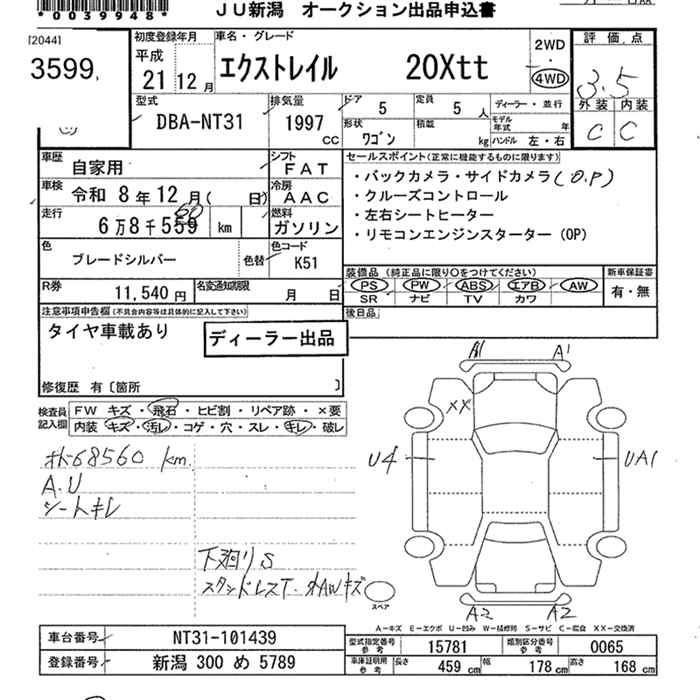 *0039948*
JU新潟 オークション出品申込書
[2044]
3599
初度登録年月
平成
21 12月
車名・グレード
エクストレイル 20Xtt
2WD
・
4WD
評価点
3.5
外装 内装
C C
型式
DBA-NT31
排気量
1997 CC
ドア 5
定員 5 人
ディーラー・並行
形状 ワゴン
積載 kg
モデル年式 年
ハンドル 左・右
車歴 自家用
シフト FAT
車検 令和 8年12月( 日)
冷房 AAC
走行 6万8千559 km
60
燃料 ガソリン
色 ブレードシルバー
色替
色コード K51
R券 11,540円
名変通知期限 月 日
セールスポイント(正常に機能するものに限ります)
・バックカメラ・サイドカメラ(O.P)
・クルーズコントロール
・左右シートヒーター
・リモコンエンジンスターター (OP)
装備品 (純正品に限り○をつけてください)
PS PW ABS エアB AW
SR ナビ TV カワ
新車保証書
有・無
後日品
注意事項申告欄(不具合内容等は具体的に記入して下さい)
タイヤ車載あり
ディーラー出品
修復歴 有〔箇所 〕
検査員記入欄
FW キズ・飛石・ヒビ割・リペア跡・×要
内装 キズ・汚レ・コゲ・穴・スレ・キレ・破レ
68560 km.
A.U
シートキレ
下廻りS
スタンドレスT. 外AWキズ
A1 A1
XX
U4 UA1
A2 A2
スペア
A－キズ E－エクボ U－凹み W－補修跡 S－サビ C－腐食 XX－交換済
車台番号 NT31-101439
登録番号 新潟 300 め 5789
型式指定番号 参考 15781
類別区分番号 参考 0065
車庫証明用 参考 長さ 459 cm 幅 178 cm 高さ 168 cm